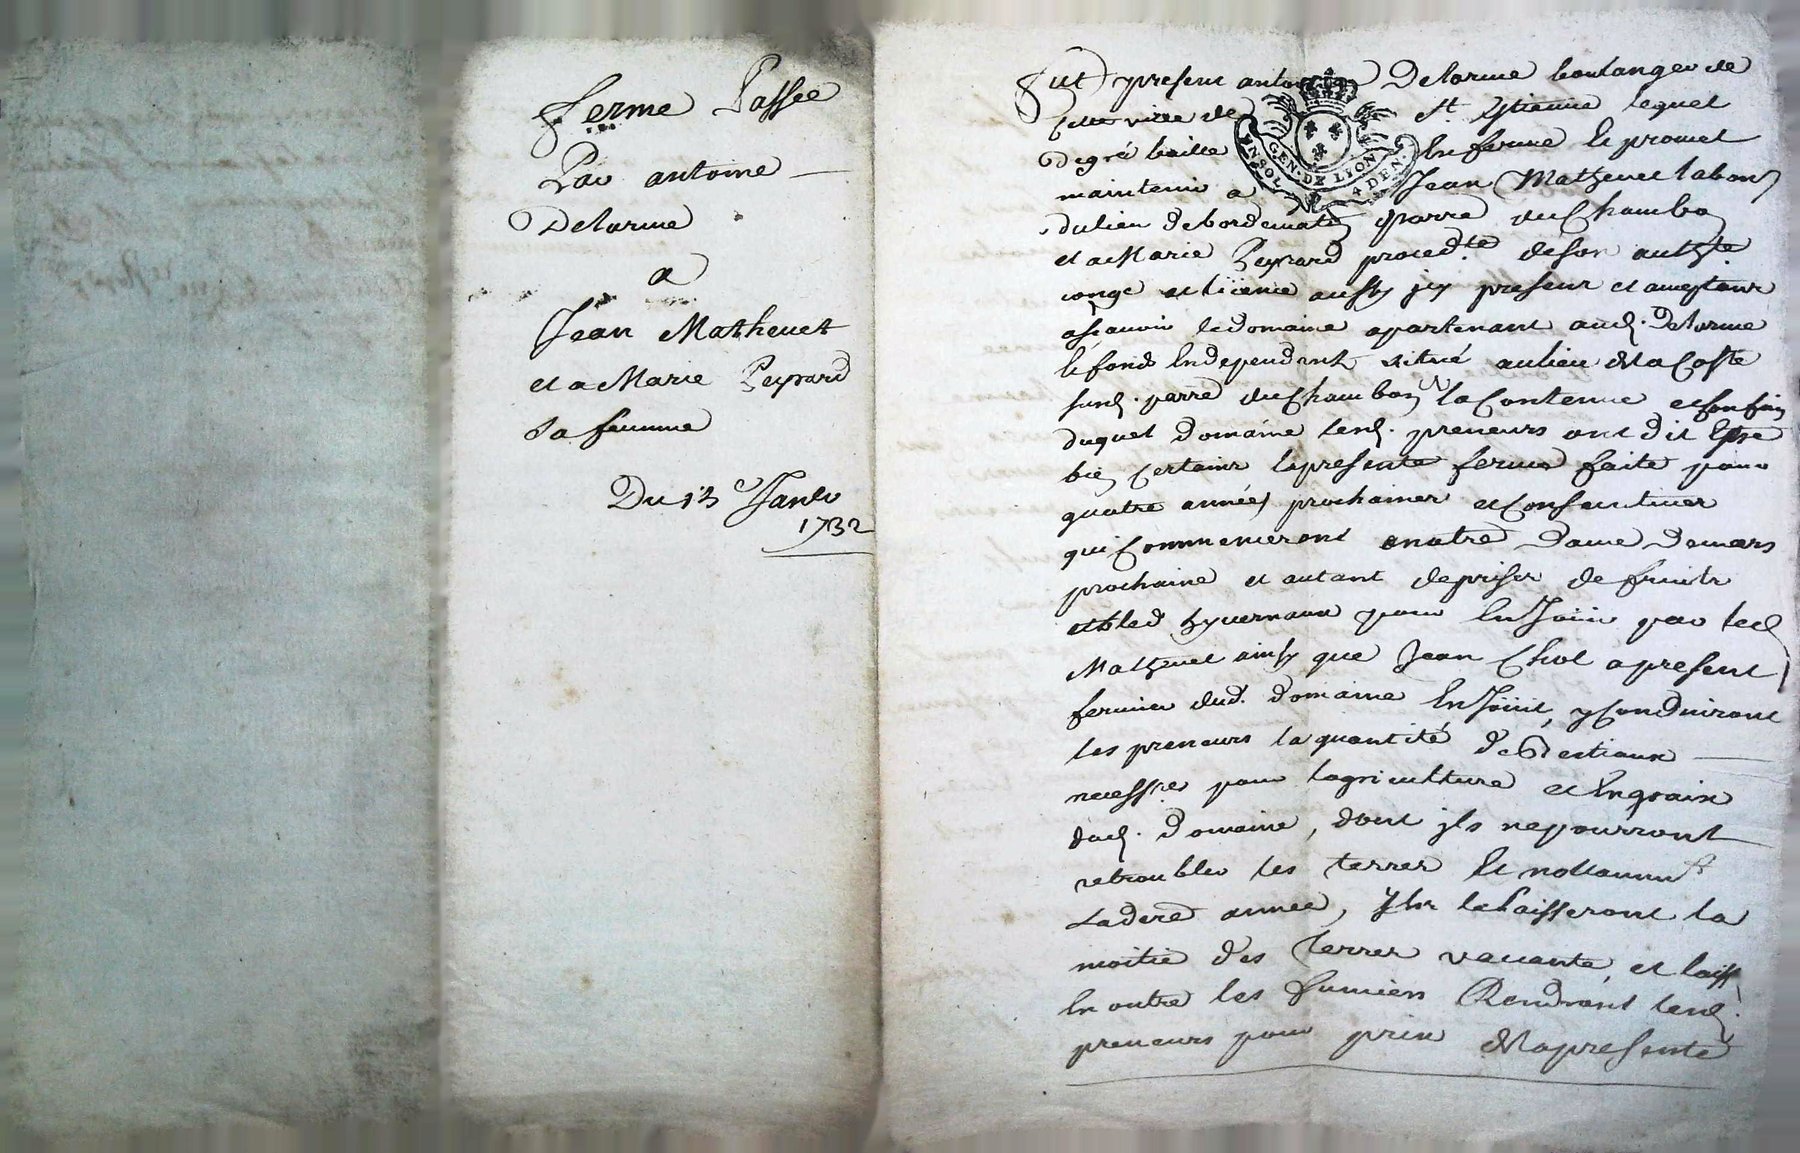 ferme Passée
Par antoine
Delorme
a
Jean Mathevet
et a Marie Peyrard
sa femme
Du 13e Janv
1732
fut present antoine Delorme boulanger de
cette ville de St Etienne lequel
de gré baille en ferme et promet
maintenir a Jean Mathevet labour
du lieu de parre du Chambon
et a Marie Peyrard proced.te de son auth.te
conge et licence aussy icy present et acceptant
a scavoir le domaine apartenant aud. Delorme
le fond en dependant situé au lieu de la Coste
susd. parre du Chambon la Contenue et confin
duquel domaine lesd. preneurs ont dit estre
bien certains la presente ferme faite pour
quatre années prochaines et consecutives
qui Commenceront a notre dame de mars
prochaine et autant de prises de fruits
et bled hyvernaux pour en Joüir par led
Mathevet ainsy que Jean Chol a present
fermier dud. domaine en Joüit, y Conduiront
les preneurs la quantité de Bestiaux
necessres pour lagriculture et engrain
dud. domaine, dont ils ne pourront
retroubler les terres et nottamment
la dere année, ils le laisseront la
moitié des terres vacante, et laiss
en outre les fumiers Rendront lesd.
preneurs pour prix de la presente
GEN. DE LYON
4 DEN.